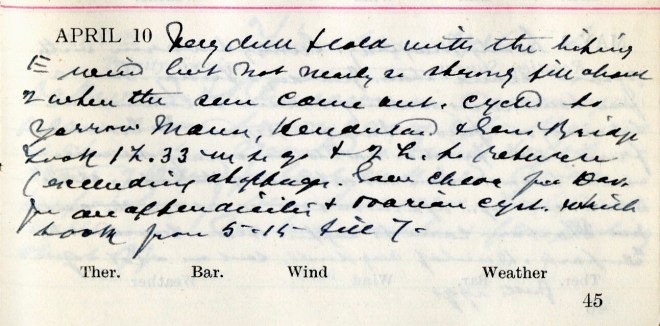 APRIL 10 Very dull & cold with the biting
E wind but not nearly so strong till about
2 when the sun came out. Cycled to
Yarrow Manse, & Bridge
took 1 h. 33 m to go & 2 h. to return
(excluding stoppages. Gave Chlor for Dav.
for an appendicitis & ovarian cyst. which
took from 5-15 till 7-
Ther. Bar. Wind Weather
45